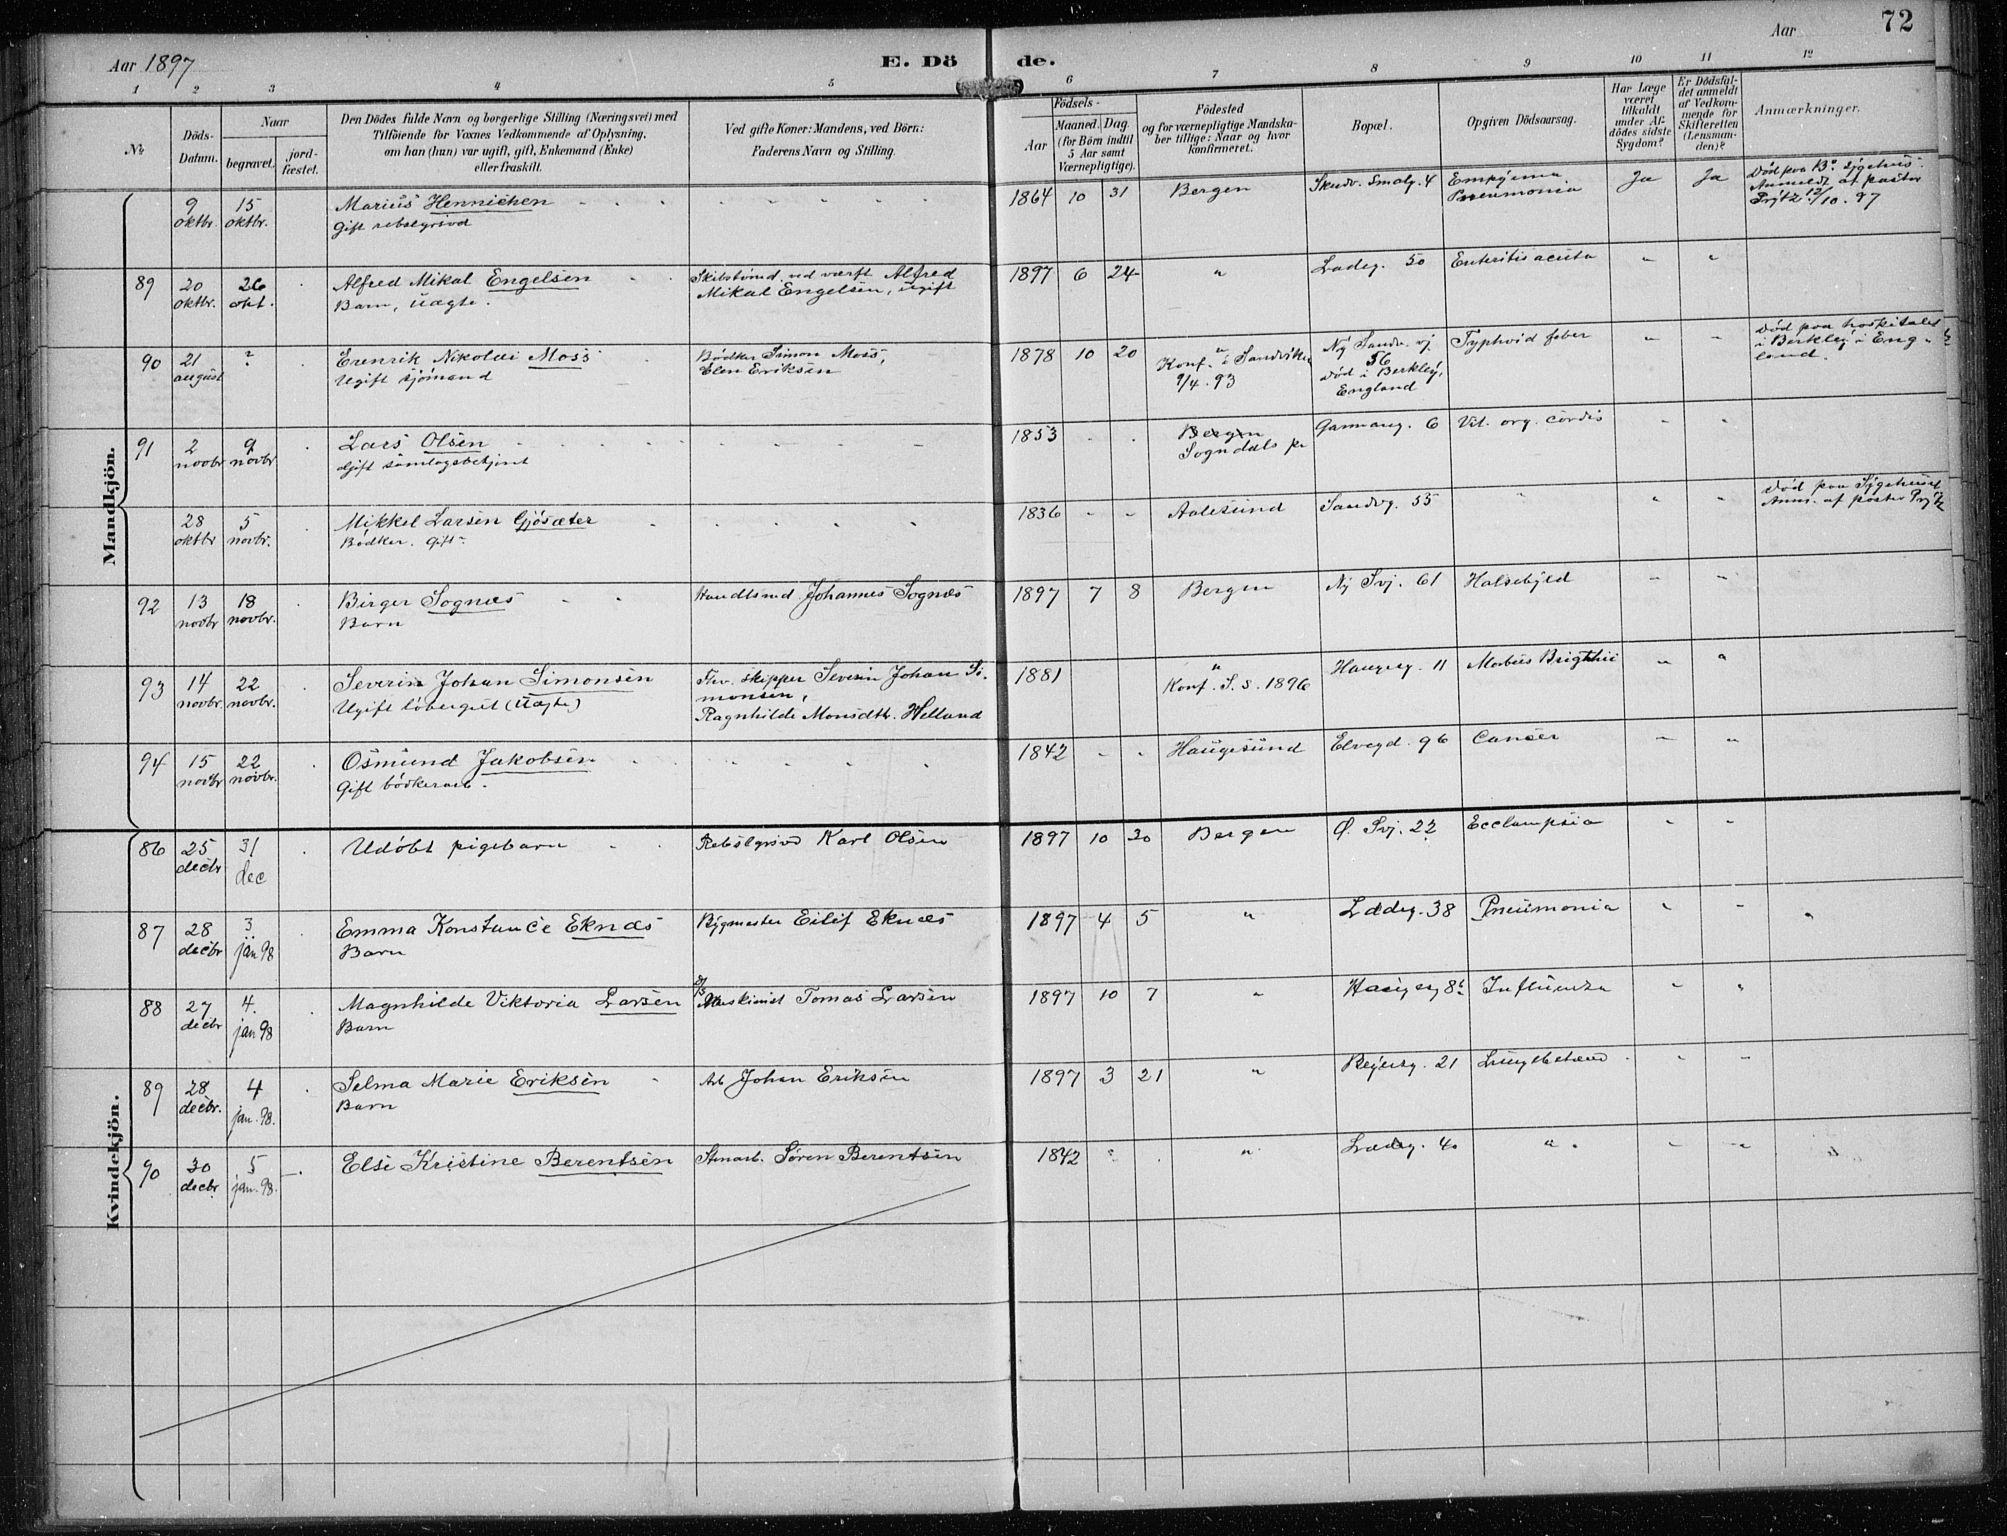 72
Aar 1897
E. Dö de.
Aar
1 2 3 4 5 6 7 8 9 10 11 12
№
Döds-
Datum.
Naar
begravet.
jord-
fæstet.
Den Dödes fulde Navn og borgerlige Stilling (Næringsvei) med
Tilföiende for Voxnes Vedkommende af Oplysning,
om han (hun) var ugift, gift, Enkemand (Enke)
eller fraskilt.
Ved gifte Koner: Mandens, ved Börn:
Faderens Navn og Stilling.
Födsels-
Aar
Maaned. Dag.
(for Börn indtil
5 Aar samt
Værnepligtige).
Födested
og for værnepligtige Mandska-
ber tillige: Naar og hvor
konfirmeret.
Bopæl.
Opgiven Dödsaarsag.
Har Læge
været
tilkaldt
under Af-
dödes sidste
Sygdom?
Er Dödsfal-
det anmeldt
af Vedkom-
mende for
Skifteretten
(Lensman-
den)?
Anmærkninger.
Mandkjön.
9 oktbr. 15 oktbr. Marius Hennichen 1864 10 31 Bergen Skudv. Smalg. 4 Empyema Ja Ja Død paa B. Sygehus.
Gift rebslgrsvd Pneumonia Anmeldt af pastor
Prytz 12/10. 97
89 20 oktbr. 26 okt. Alfred Mikal Engelsen Skibstømd. ved værft Alfred 1897 6 24 " Ladeg. 50 Enteritis acuta " "
Barn, uægte. Mikal Engelsen, ugift
90 21 august ? Erenrik Nikolai Moss Bødker Simon Moss, 1878 10 20 " Ny Sandv. vj. Typhoid feber " " Død paa hospitalet
Ugift sjömand Elen Eriksen Konf. i Sandviken 56 i Berkley i Eng-
9/4. 93 død i Berkley, land.
England
91 2 novbr 9 novbr. Lars Olsen 1853 Bergen Garmang. 6 Vit. org. cordis " "
Gift samlagsbetjent Sogndals
28 oktbr 5 novbr. Mikkel Larsen Gjösæter 1836 Aalesund Sandvg. 55 " " " Død paa Sygehuset
Bødker. Gift Anm. af pastor
92 13 novbr 18 novbr. Birger Sognæs Handlsmd. Johannes Sognæs 1897 7 8 Bergen Ny Svj. 61 Halsebyld " "
Barn
93 14 novbr. 22 novbr. Severin Johan Simonsen Fhv. skipper Severin Johan Si- 1881 " Haugeg. 11 Morbus Brigthii " "
Ugift løbergut (Uægte) monsen, Konf. S. s. 1896
Ragnhilde Monsdtr. Helland
94 15 novbr 22 novbr. Osmund Jakobsen 1842 Haugesund Elvegd. 96 Cancer " "
Gift bødkerarb.
Kvindekjön.
86 25 decbr 31 dec Udøbt pigebarn Rebslgrsvd Karl Olsen 1897 10 30 Bergen Ø. Svj. 22 Ecclampsia " "
87 28 decbr 3 jan 98 Emma Konstance Eknæs Bygmester Eilif Eknæs 1897 4 5 " Ladeg. 38 Pneumonia " "
Barn
88 27 decbr 4. jan 98 Magnhilde Viktoria Larsen Maskinist Tomas Larsen 1897 10 7 " Haugeg 8 Influenza " "
Barn
89 28 decbr. 4 jan. 98. Selma Marie Eriksen Arb Johan Eriksen 1897 3 21 " Reperg. 21 Lungbetænd " "
Barn
90 30 decbr 5 jan. 98. Elsi Kristine Berentsen Stenarb. Søren Berentsen 1842 " Ladeg. 40 " " "